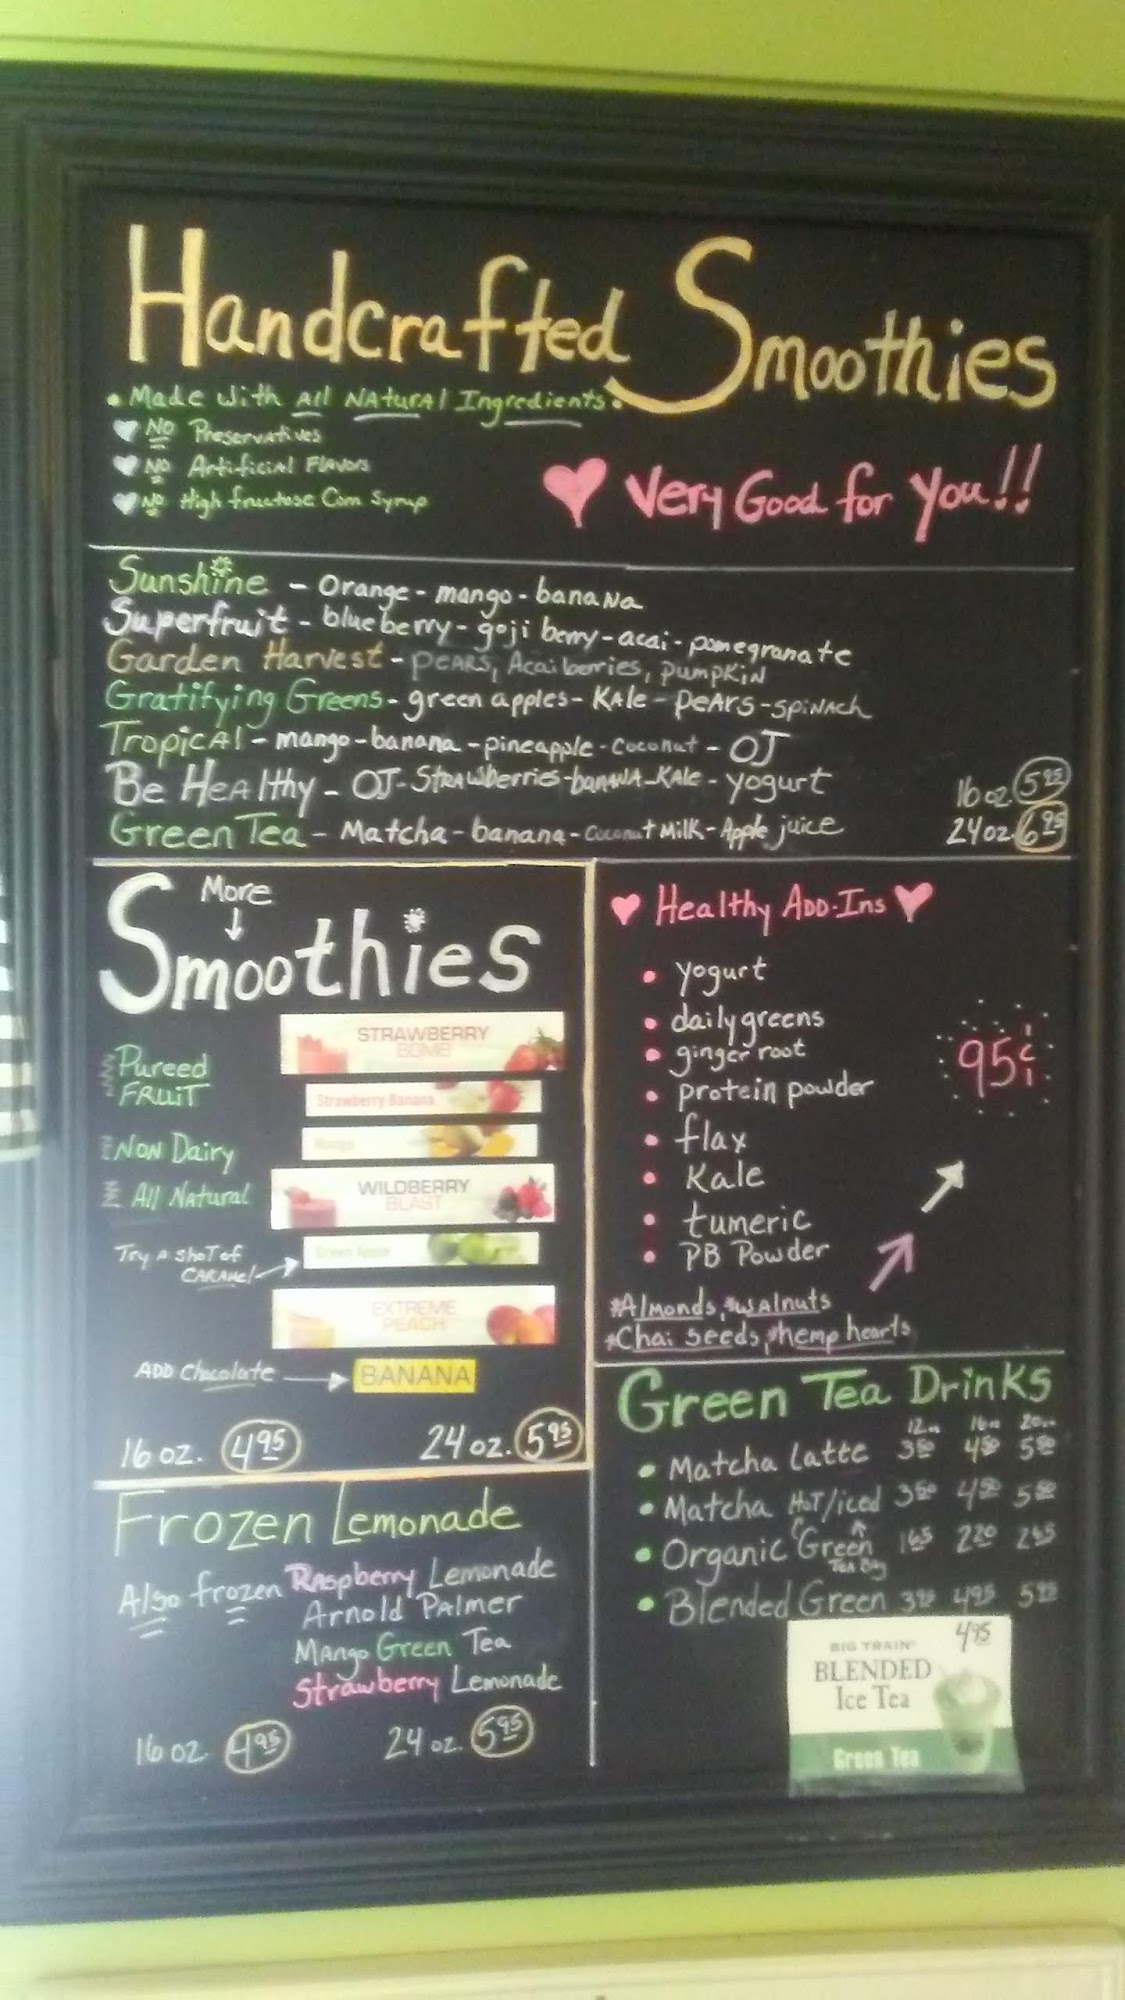 Handcrafted Smoothies
• Made with All Natural Ingredients •
No Preservatives
No Artificial Flavors
No High fructose Corn Syrup
Very Good for you!!
Sunshine - orange - mango - banana
Superfruit - blueberry - goji berry - acai - pomegranate
Garden Harvest - pears, Acai berries, pumpkin
Gratifying Greens - green apples - Kale - pears - spinach
Tropical - mango - banana - pineapple - coconut - OJ
Be Healthy - OJ - Strawberries - banana - Kale - yogurt
16 oz. 5.95
Green Tea - Matcha - banana - Coconut Milk - Apple juice
24 oz 6.95
More
Smoothies
STRAWBERRY
BOMB
Pureed
FRUIT
Strawberry Banana
Mango
Non Dairy
WILDBERRY
BLAST
All Natural
Green Apple
Try a shot of
CARAmel
EXTREME
PEACH
ADD Chocolate
BANANA
16 oz. 4.95
24 oz. 5.95
Frozen Lemonade
Also frozen Raspberry Lemonade
Arnold Palmer
Mango Green Tea
Strawberry Lemonade
16 oz. 4.95
24 oz. 5.95
Healthy ADD-Ins
• yogurt
• daily greens
• ginger root
• protein powder
• flax
• Kale
• tumeric
• PB Powder
95¢
*Almonds, *walnuts
*Chai seeds, *hemp hearts
Green Tea Drinks
12oz 16oz 20oz
• Matcha Latte 3.50 4.50 5.50
• Matcha Hot/iced 3.50 4.50 5.50
• Organic Green 1.65 2.20 2.65
Tea Bag
• Blended Green 3.95 4.95 5.95
4.95
BIG TRAIN
BLENDED
Ice Tea
Green Tea